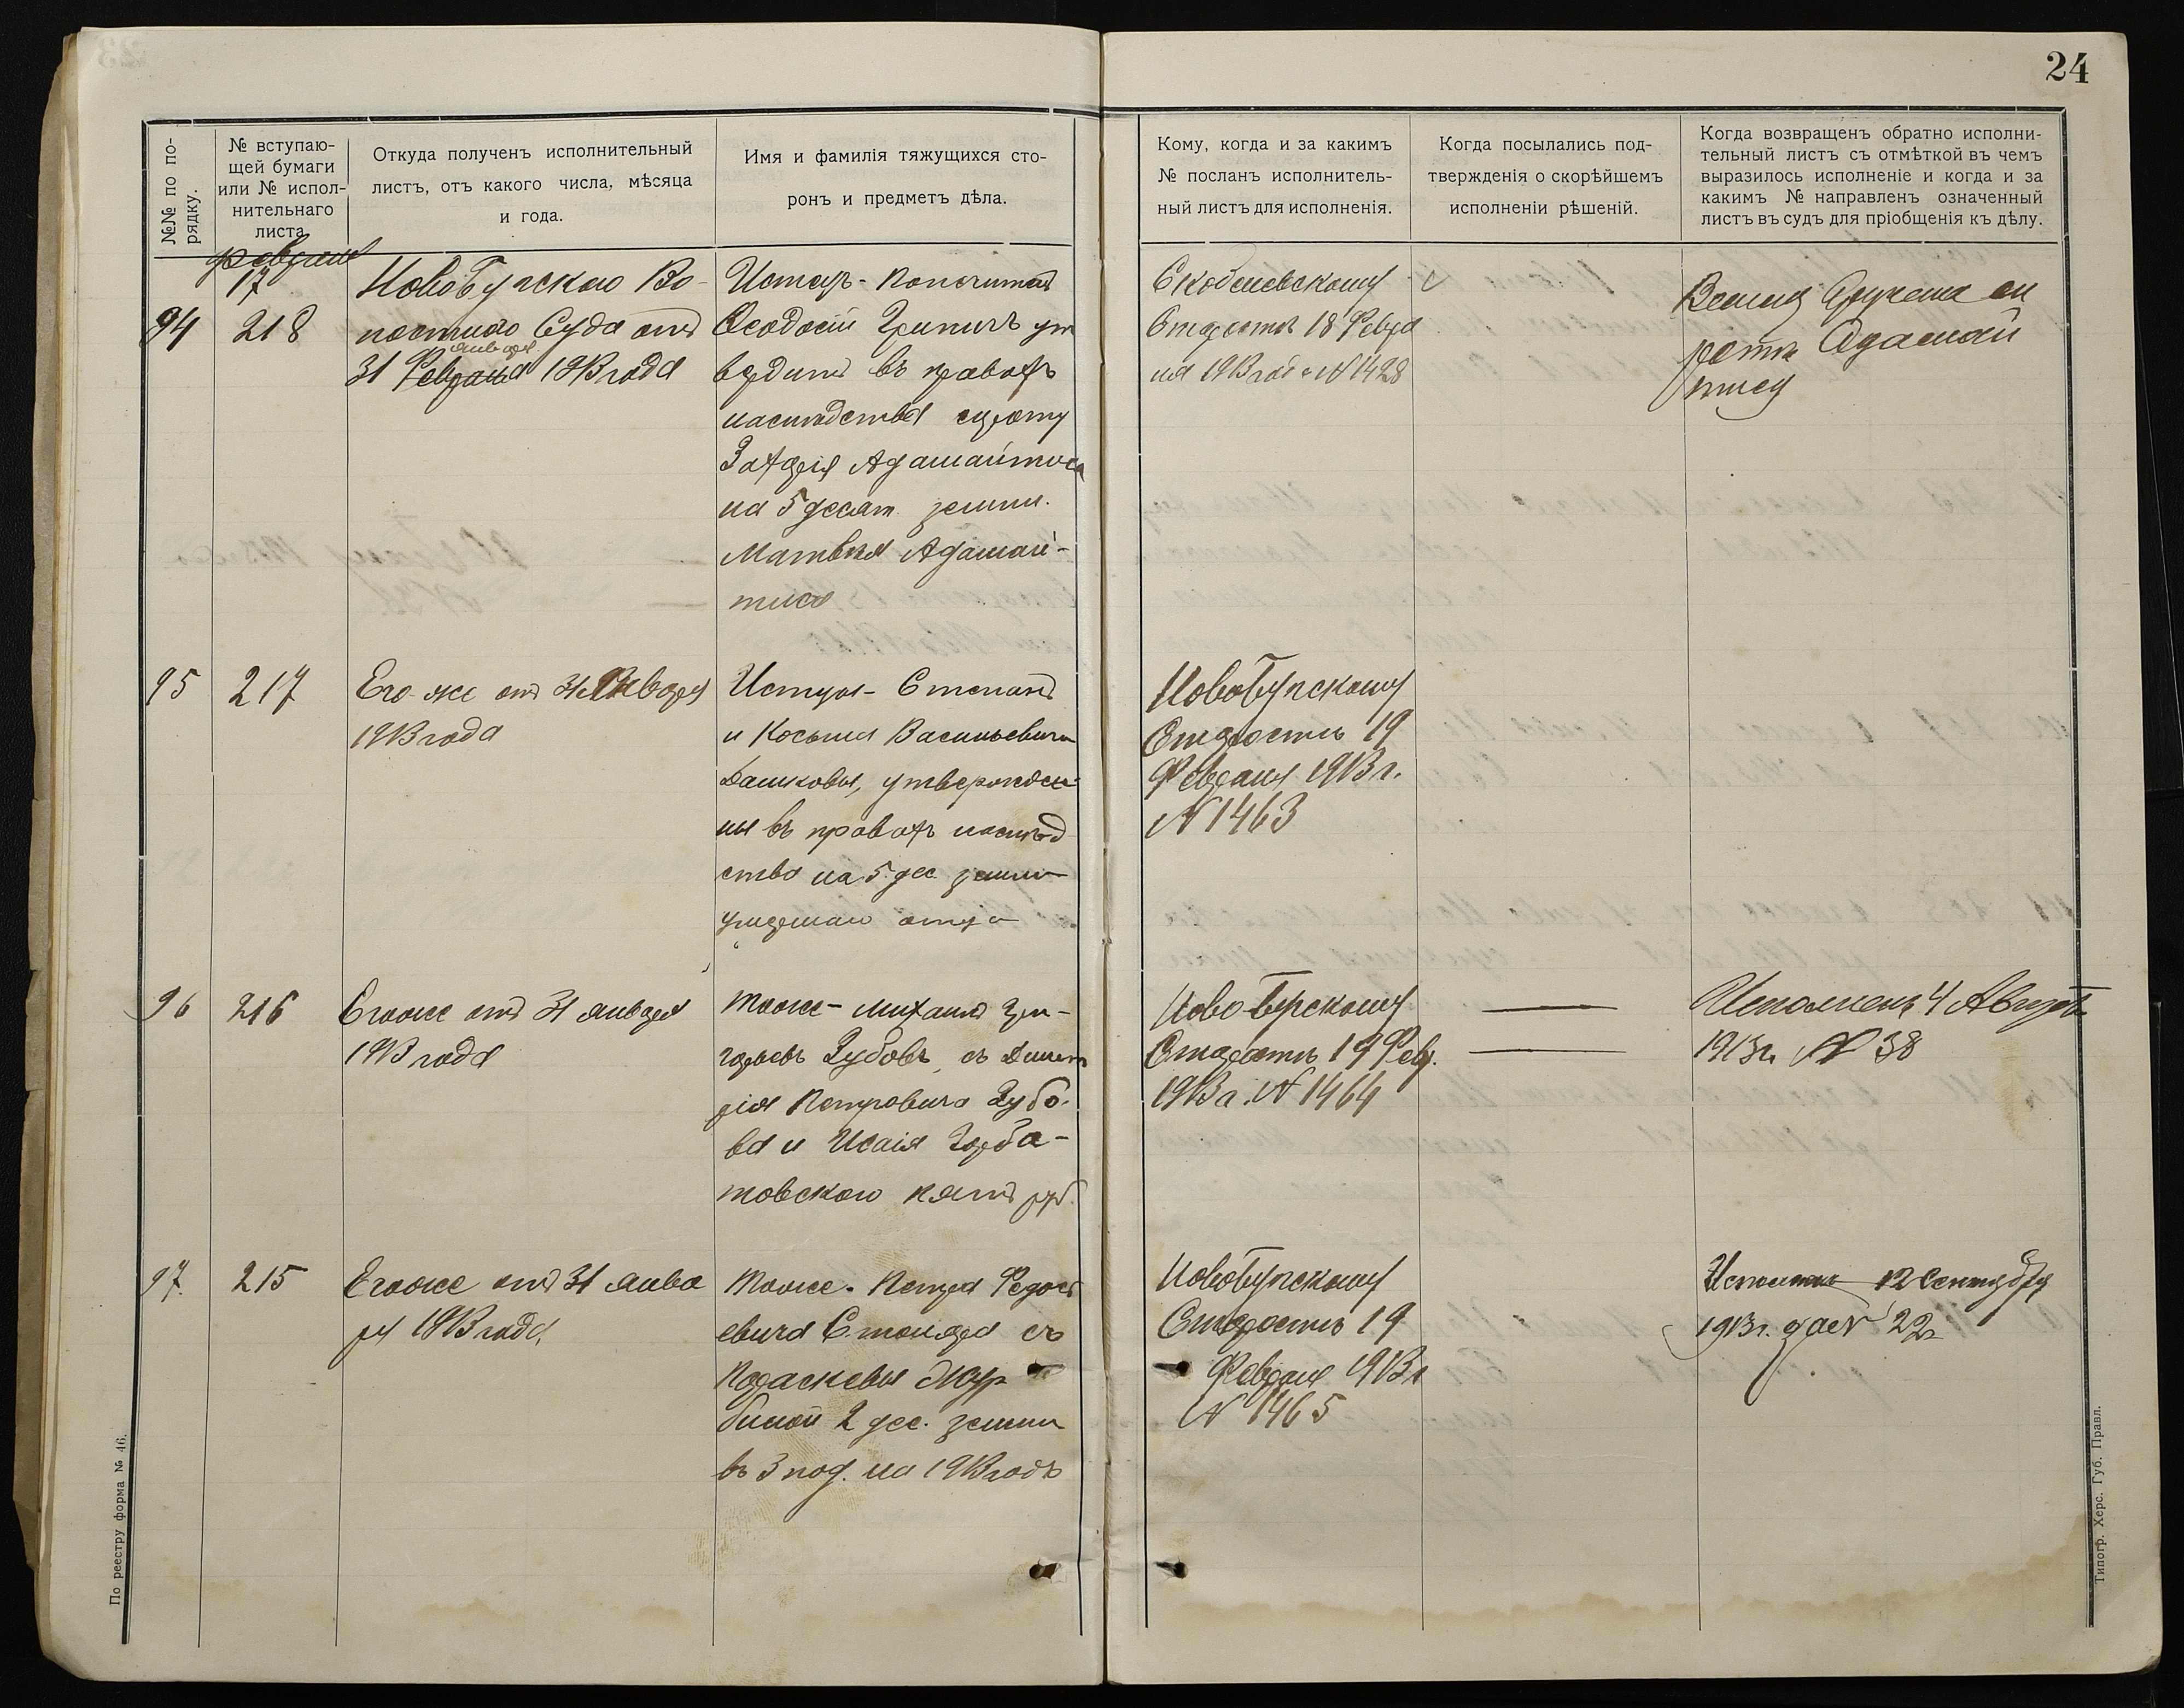 24
№№ по по-
рядку.
№ вступаю-
щей бумаги
или № испол-
нительнаго
листа
Откуда полученъ исполнительный
листъ, отъ какого числа, мѣсяца
и года.
Имя и фамилія тяжущихся сто-
ронъ и предметъ дѣла.
Кому, когда и за какимъ
№ посланъ исполнитель-
ный листъ для исполненія.
Когда посылались под-
твержденія о скорѣйшемъ
исполненіи рѣшеній.
Когда возвращенъ обратно исполни-
тельный листъ съ отмѣткой въ чемъ
выразилось исполненіе и когда и за
какимъ № направленъ означенный
листъ въ судъ для пріобщенія къ дѣлу.
февраля
17
94
218
Новобугскаго Во-
лостнаго Суда отъ
января
31 Февраля 1913 года
Истецъ-
Феодосій ут
вердить въ правахъ
наслѣдства сироту
Захарія
на 5 десят. земли
Матвѣя Адамай-
тиса
Скобелевскому
Старостѣ 18 Февра
ля 1913 года № 1428
95
217
Его-же отъ 31 Января
1913 года
Истцы- Степанъ
и Косьма Васильевичи
Дашковы, утвержде
ны въ правахъ наслѣд
ства на 5 дес. земли
умершаго отца
Новобугскому
Старостѣ 19
Февраля 1913 г.
№ 1463
96
216
Егоже отъ 31 января
1913 года
Тоже- Михаилъ Гри-
горьевъ Зубовъ, съ Димит
рія Петровича Зубо-
ва и Исаія Горба-
товскаго пять руб.
Ново-Бугскому
Старостѣ 19 Февр.
1913 г. № 1464
Исполненъ 4 Августа
1913 г. № 38
97.
215
Егоже отъ 31 янва
ря 1913 года
Тоже- Петра Федось
евича Столяра съ
Параскевы
биной 2 дес. земли
въ 3 пол. на 1913 годъ
Новобугскому
Старостѣ 19
Февраля 1913 г
№ 1465
12 Сентября
1913 г. за № 22
По реестру форма № 46.
Типогр. Херс. Губ. Правл.